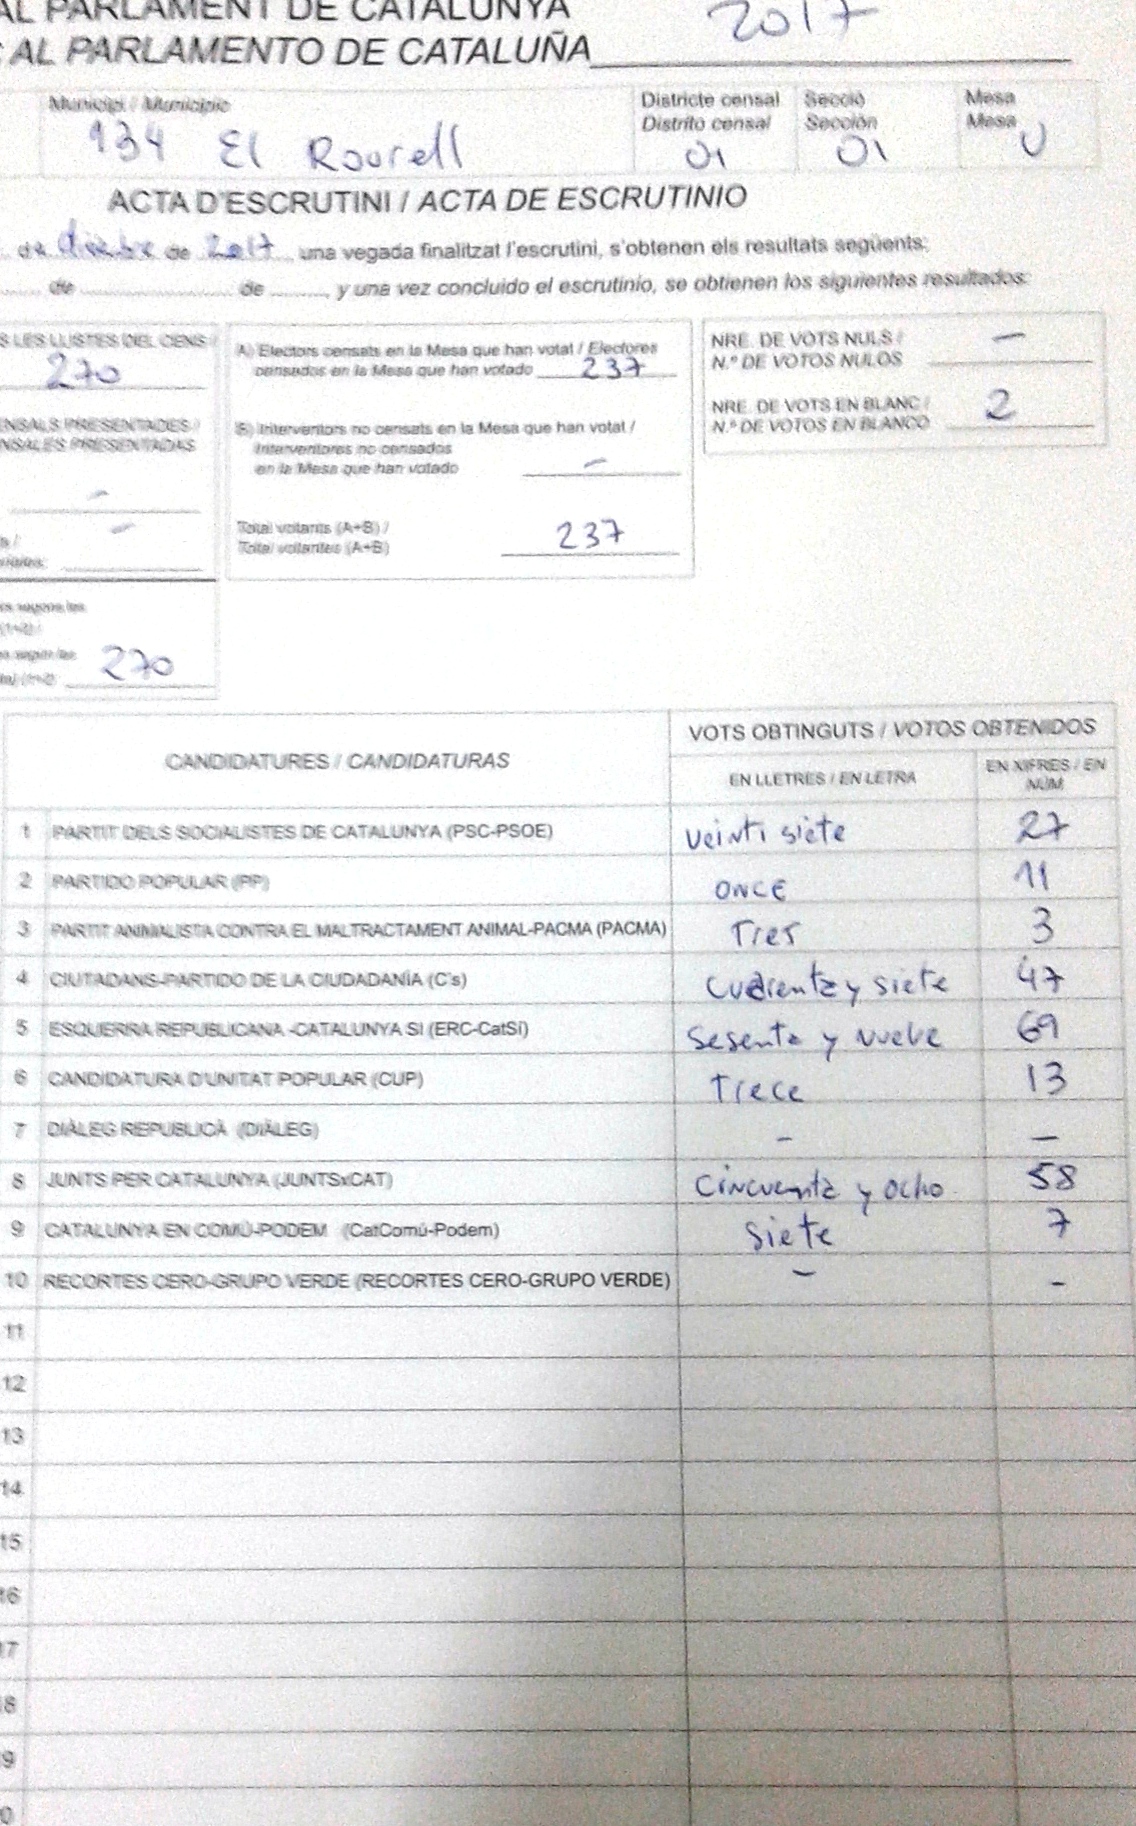 AL PARLAMENT DE CATALUNYA
AL PARLAMENTO DE CATALUÑA 2017
Municipi / Municipio
134 El Rourell
Districte censal
Distrito censal
01
Secció
Sección
01
Mesa
Mesa
U
ACTA D'ESCRUTINI / ACTA DE ESCRUTINIO
de de 2017 una vegada finalitzat l'escrutini, s'obtenen els resultats següents:
de de y una vez concluido el escrutinio, se obtienen los siguientes resultados:
S LES LLISTES DEL CENS /
270
ENSALS PRESENTADES /
NSALES PRESENTADAS
–
–
(1+2) /
270
A) Electors censats en la Mesa que han votat / Electores
censados en la Mesa que han votado 237
B) Interventors no censats en la Mesa que han votat /
Interventores no censados
en la Mesa que han votado –
Total votants (A+B) /
Total votantes (A+B) 237
NRE. DE VOTS NULS /
N.º DE VOTOS NULOS –
NRE. DE VOTS EN BLANC /
N.º DE VOTOS EN BLANCO 2
CANDIDATURES / CANDIDATURAS
VOTS OBTINGUTS / VOTOS OBTENIDOS
EN LLETRES / EN LETRA
EN XIFRES / EN
NÚM.
1 PARTIT DELS SOCIALISTES DE CATALUNYA (PSC-PSOE) veinti siete 27
2 PARTIDO POPULAR (PP) ONCE 11
3 PARTIT ANIMALISTA CONTRA EL MALTRACTAMENT ANIMAL-PACMA (PACMA) Tres 3
4 CIUTADANS-PARTIDO DE LA CIUDADANÍA (C's) cuarenta y siete 47
5 ESQUERRA REPUBLICANA -CATALUNYA SÍ (ERC-CatSí) Sesenta y nueve 69
6 CANDIDATURA D'UNITAT POPULAR (CUP) Trece 13
7 DIÀLEG REPUBLICÀ (DIÀLEG) – –
8 JUNTS PER CATALUNYA (JUNTSxCAT) Cincuenta y ocho 58
9 CATALUNYA EN COMÚ-PODEM (CatComú-Podem) siete 7
10 RECORTES CERO-GRUPO VERDE (RECORTES CERO-GRUPO VERDE) – –
11
12
13
14
15
16
7
8
9
0